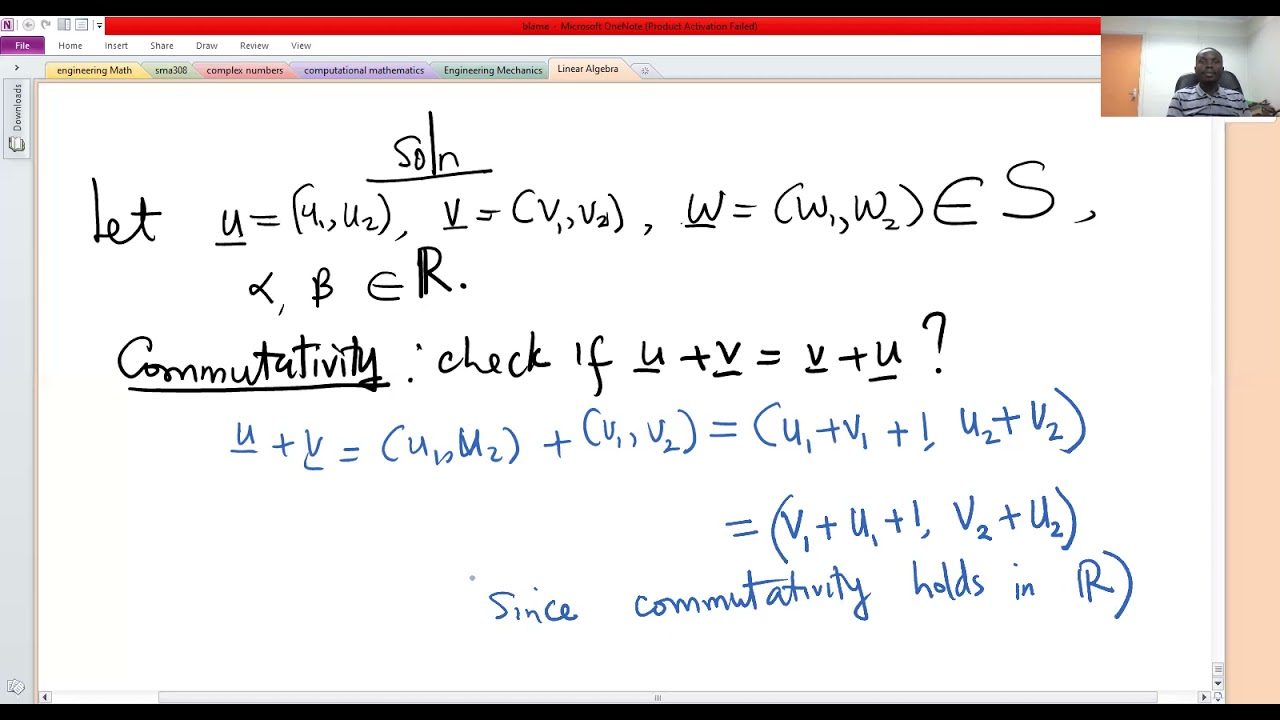 blame - Microsoft OneNote (Product Activation Failed)
File Home Insert Share Draw Review View
engineering Math sma308 complex numbers computational mathematics Engineering Mechanics Linear Algebra
Downloads
soln
Let u = (u₁, u₂), v = (v₁, v₂), w = (w₁, w₂) ∈ S,
α, β ∈ ℝ.
Commutativity : check if u + v = v + u ?
u + v = (u₁, u₂) + (v₁, v₂) = (u₁ + v₁ + 1, u₂ + v₂)
= (v₁ + u₁ + 1, v₂ + u₂)
since commutativity holds in ℝ)